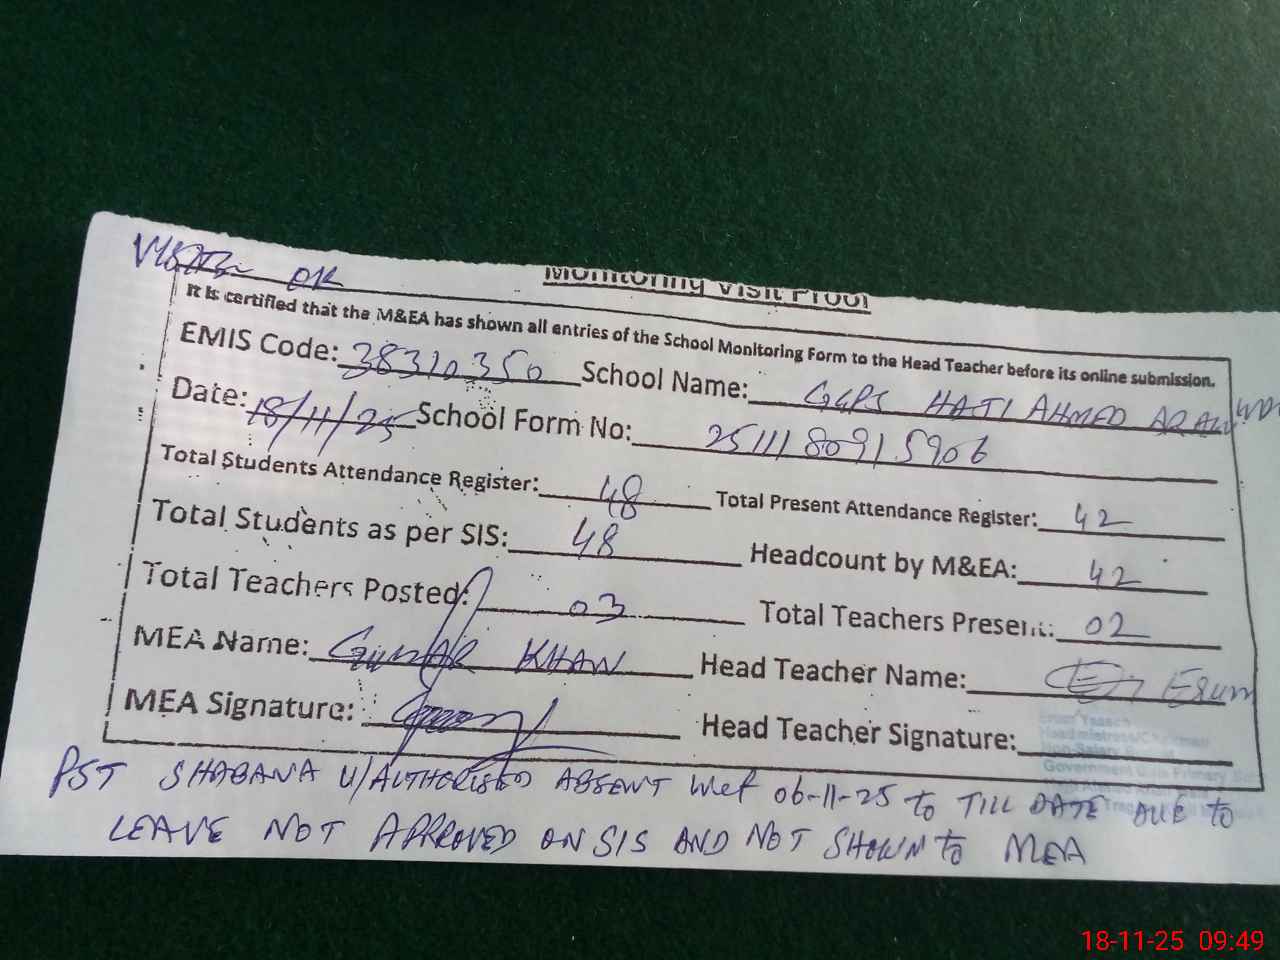 OK
Monitoring Visit Proof
It is certified that the M&EA has shown all entries of the School Monitoring Form to the Head Teacher before its online submission.
EMIS Code: 38310350 School Name: GGPS HAJI AHMED ARAIN
Date: 18/11/25 School Form No: 2511180915906
Total Students Attendance Register: 48 Total Present Attendance Register: 42
Total Students as per SIS: 48 Headcount by M&EA: 42
Total Teachers Posted: 03 Total Teachers Present: 02
MEA Name: KHAN Head Teacher Name:
MEA Signature: Head Teacher Signature:
Government Girls Primary
PST SHABANA U/AUTHORISED ABSENT wef 06-11-25 to TILL DATE DUE to
LEAVE NOT APPROVED ON SIS AND NOT SHOWN to MEA
18-11-25 09:49